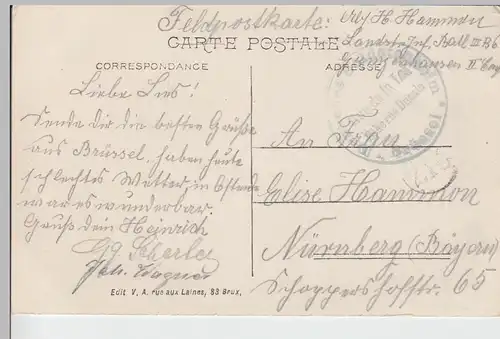 Feldpostkarte: Abs. H. Hammon
Landst. Inf. Batl. III B 6
CARTE POSTALE
Gunzenhausen II Comp
CORRESPONDANCE
ADRESSE
Liebe Lies!
Sende Dir die besten Grüße
aus Brüssel, haben heute
schlechtes Wetter, in Ostende
war es wunderbar.
Gruß dein Heinrich
Joh. Wagner
An Frau
Elise Hammon
Nürnberg (Bayern)
Schoppershofstr. 65
Brüssel
Edit. V. A. rue aux Laines, 83 Brux.